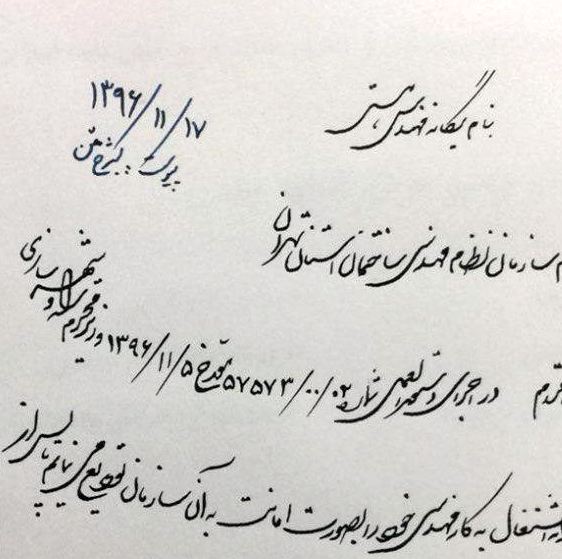 بنام یگانه مهندس هستی
۱۳۹۶/۱۱/۱۷
پیوست: بشرح متن
سازمان نظام مهندسی ساختمان استان تهران
در اجرای دستورالعمل شماره ۵۷۵۷۳/۱۰۰/۰۲ مورخ ۱۳۹۶/۱۱/۵ وزیر محترم راه و شهرسازی
اشتغال به کار مهندسی خود را بصورت امانت به آن سازمان تحویل می نمایم تا پس از